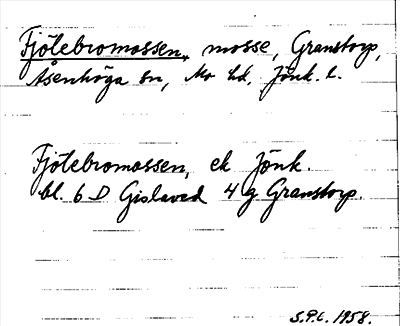 Fjölebromossen, mosse, Granstorp,
Åsenhöga sn, Mo hd, Jönk. l.
Fjölebromossen, ek Jönk.
bl. 6 D Gislaved 4 g Granstorp.
S.P.L. 1958.